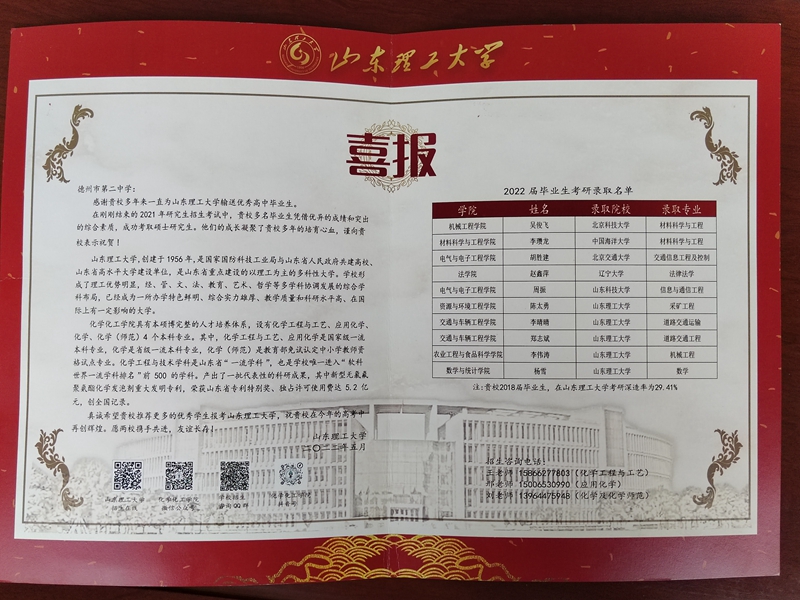 山东理工大学
喜报
德州市第二中学：
感谢贵校多年来一直为山东理工大学输送优秀高中毕业生。
在刚刚结束的2021年研究生招生考试中，贵校多名毕业生凭借优异的成绩和突出
的综合素质，成功考取硕士研究生。他们的成长凝聚了贵校多年的培育心血，谨向贵
校表示祝贺！
山东理工大学，创建于1956年，是国家国防科技工业局与山东省人民政府共建高校、
山东省高水平大学建设单位，是山东省重点建设的以理工为主的多科性大学。学校形
成了理工优势明显，经、管、文、法、教育、艺术、哲学等多学科协调发展的综合学
科布局，已经成为一所办学特色鲜明、综合实力雄厚、教学质量和科研水平高、在国
际上有一定影响的大学。
化学化工学院具有本硕博完整的人才培养体系，设有化学工程与工艺、应用化学、
化学、化学（师范）4个本科专业。其中，化学工程与工艺、应用化学是国家级一流
本科专业，化学是省级一流本科专业，化学（师范）是教育部免试认定中小学教师资
格试点专业。化学工程与技术学科是山东省“一流学科”，也是学校唯一进入“软科
世界一流学科排名”前500的学科。产出了一批代表性的科研成果，其中新型无氯氟
聚氨酯化学发泡剂重大发明专利，荣获山东省专利特别奖、独占许可使用费达5.2亿
元，创全国记录。
真诚希望贵校推荐更多的优秀学生报考山东理工大学，祝贵校在今年的高考中
再创辉煌。愿两校携手共进，友谊长存！
山东理工大学
二〇二二年五月
山东理工大学
招生在线
化学化工学院
微信公众号
学校招生
咨询QQ群
化学化工学院
抖音号
2022届毕业生考研录取名单
学院 姓名 录取院校 录取专业
机械工程学院 吴俊飞 北京科技大学 材料科学与工程
材料科学与工程学院 李璎龙 中国海洋大学 材料科学与工程
电气与电子工程学院 胡胜建 北京交通大学 交通信息工程及控制
法学院 赵鑫萍 辽宁大学 法律法学
电气与电子工程学院 周振 山东科技大学 信息与通信工程
资源与环境工程学院 陈太勇 山东理工大学 采矿工程
交通与车辆工程学院 李晴晴 山东理工大学 道路交通运输
交通与车辆工程学院 郑志斌 山东理工大学 道路交通工程
农业工程与食品科学学院 李伟涛 山东理工大学 机械工程
数学与统计学院 杨雪 山东理工大学 数学
注：贵校2018届毕业生，在山东理工大学考研深造率为29.41%
招生咨询电话：
王老师 15866277803（化学工程与工艺）
邢老师 15006530990（应用化学）
刘老师 13964475948（化学及化学师范）